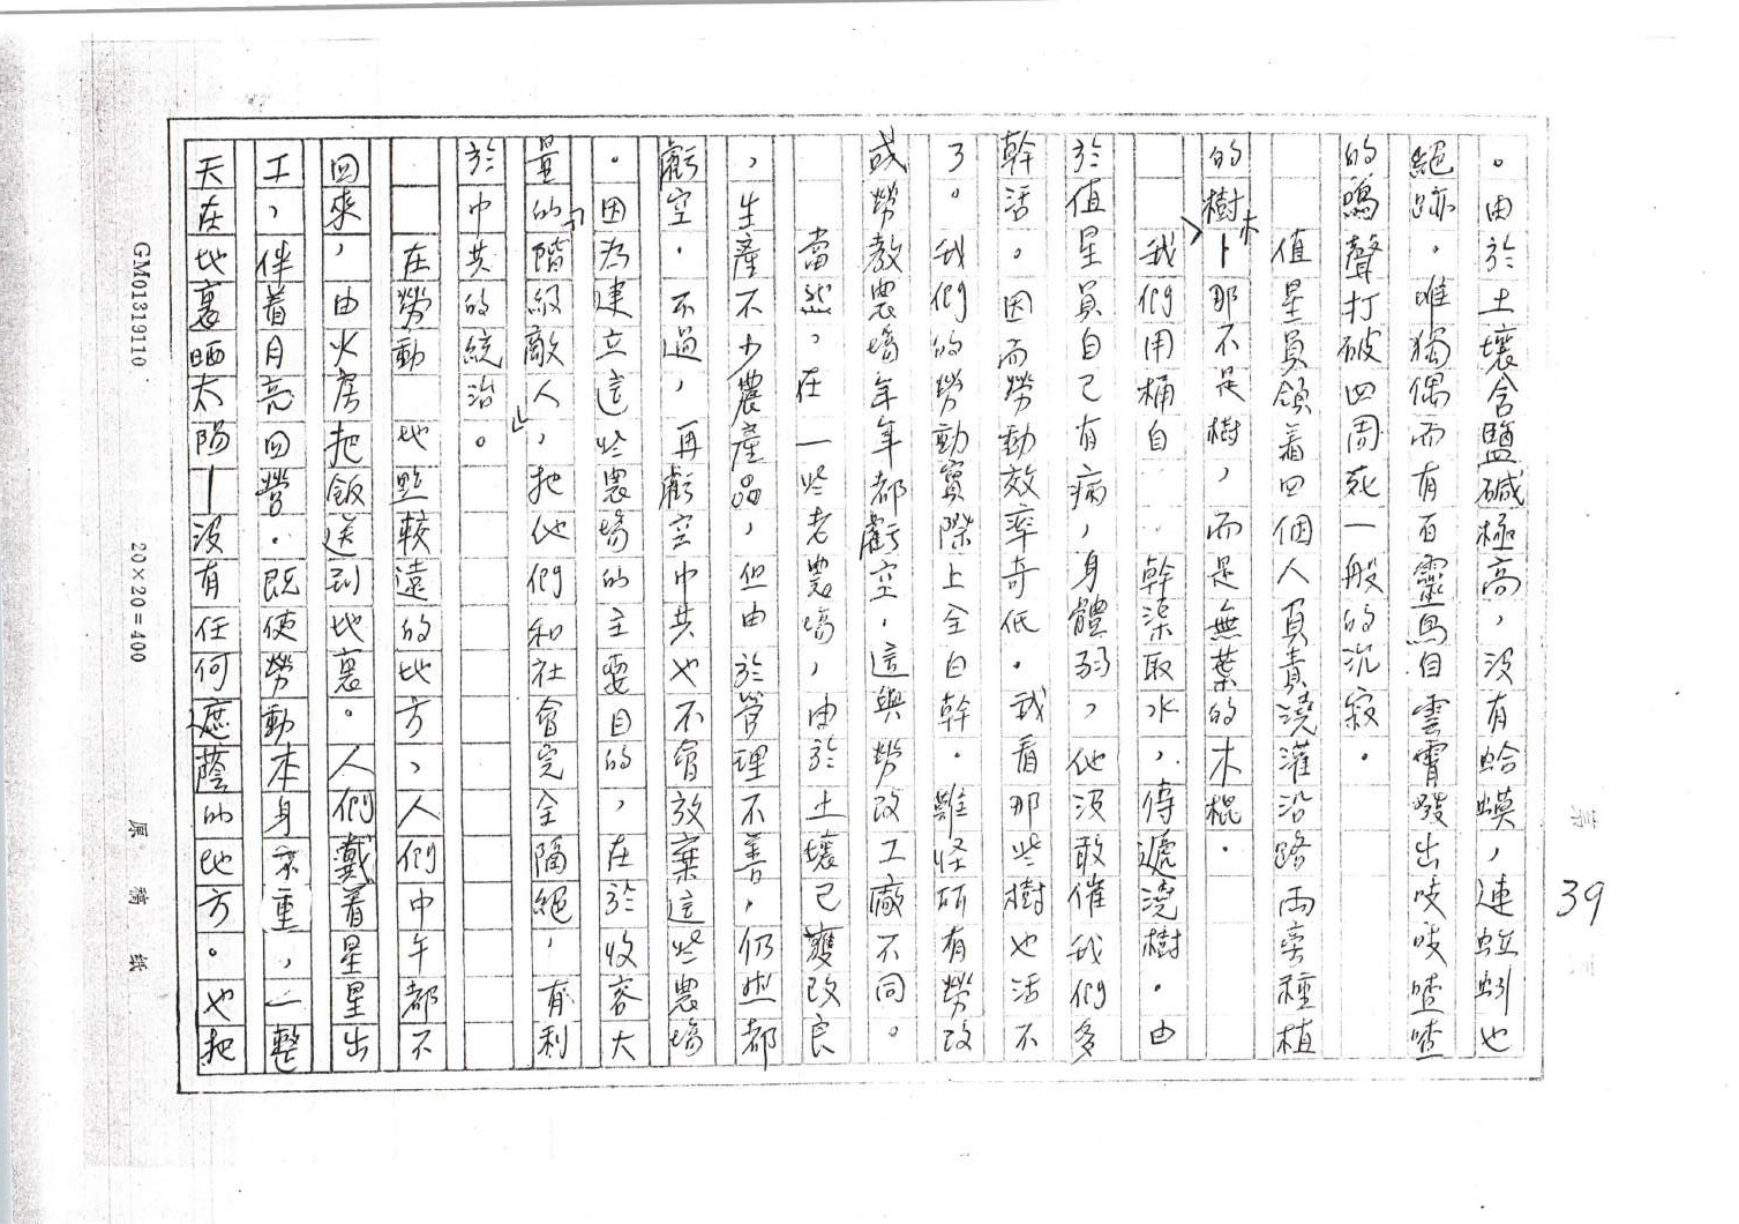 39
。由於土壤含鹽碱極高，沒有蛤蟆，連蚯蚓也
絕跡。唯獨偶而有百靈鳥自雲霄發出吱吱喳喳
的鳴聲打破四周死一般的沉寂。
值星員領着四個人負責澆灌沿路兩旁種植
的樹木—那不是樹，而是無葉的木棍。
我們用桶自幹渠取水，傳遞澆樹。由
於值星員自己有病，身體弱，他沒敢催我們多
幹活。因而勞動效率奇低。我看那些樹也活不
了。我們的勞動實際上全白幹。難怪所有勞改
或勞教農場年年都虧空，這與勞改工廠不同。
當然，在一些老農場，由於土壤已變改良
，生產不少農產品，但由於管理不善，仍然都
虧空。不過，再虧空中共也不會放棄這些農場
。因為建立這些農場的主要目的，在於收容大
量的「階級敵人」，把他們和社會完全隔絕，有利
於中共的統治。
在勞動地點較遠的地方，人們中午都不
回來，由火房把飯送到地裏。人們戴着星星出
工，伴着月亮回營。既使勞動本身不重，一整
天在地裏晒太陽—沒有任何遮蔭的地方。也把
GM01319110
20×20=400
原稿紙